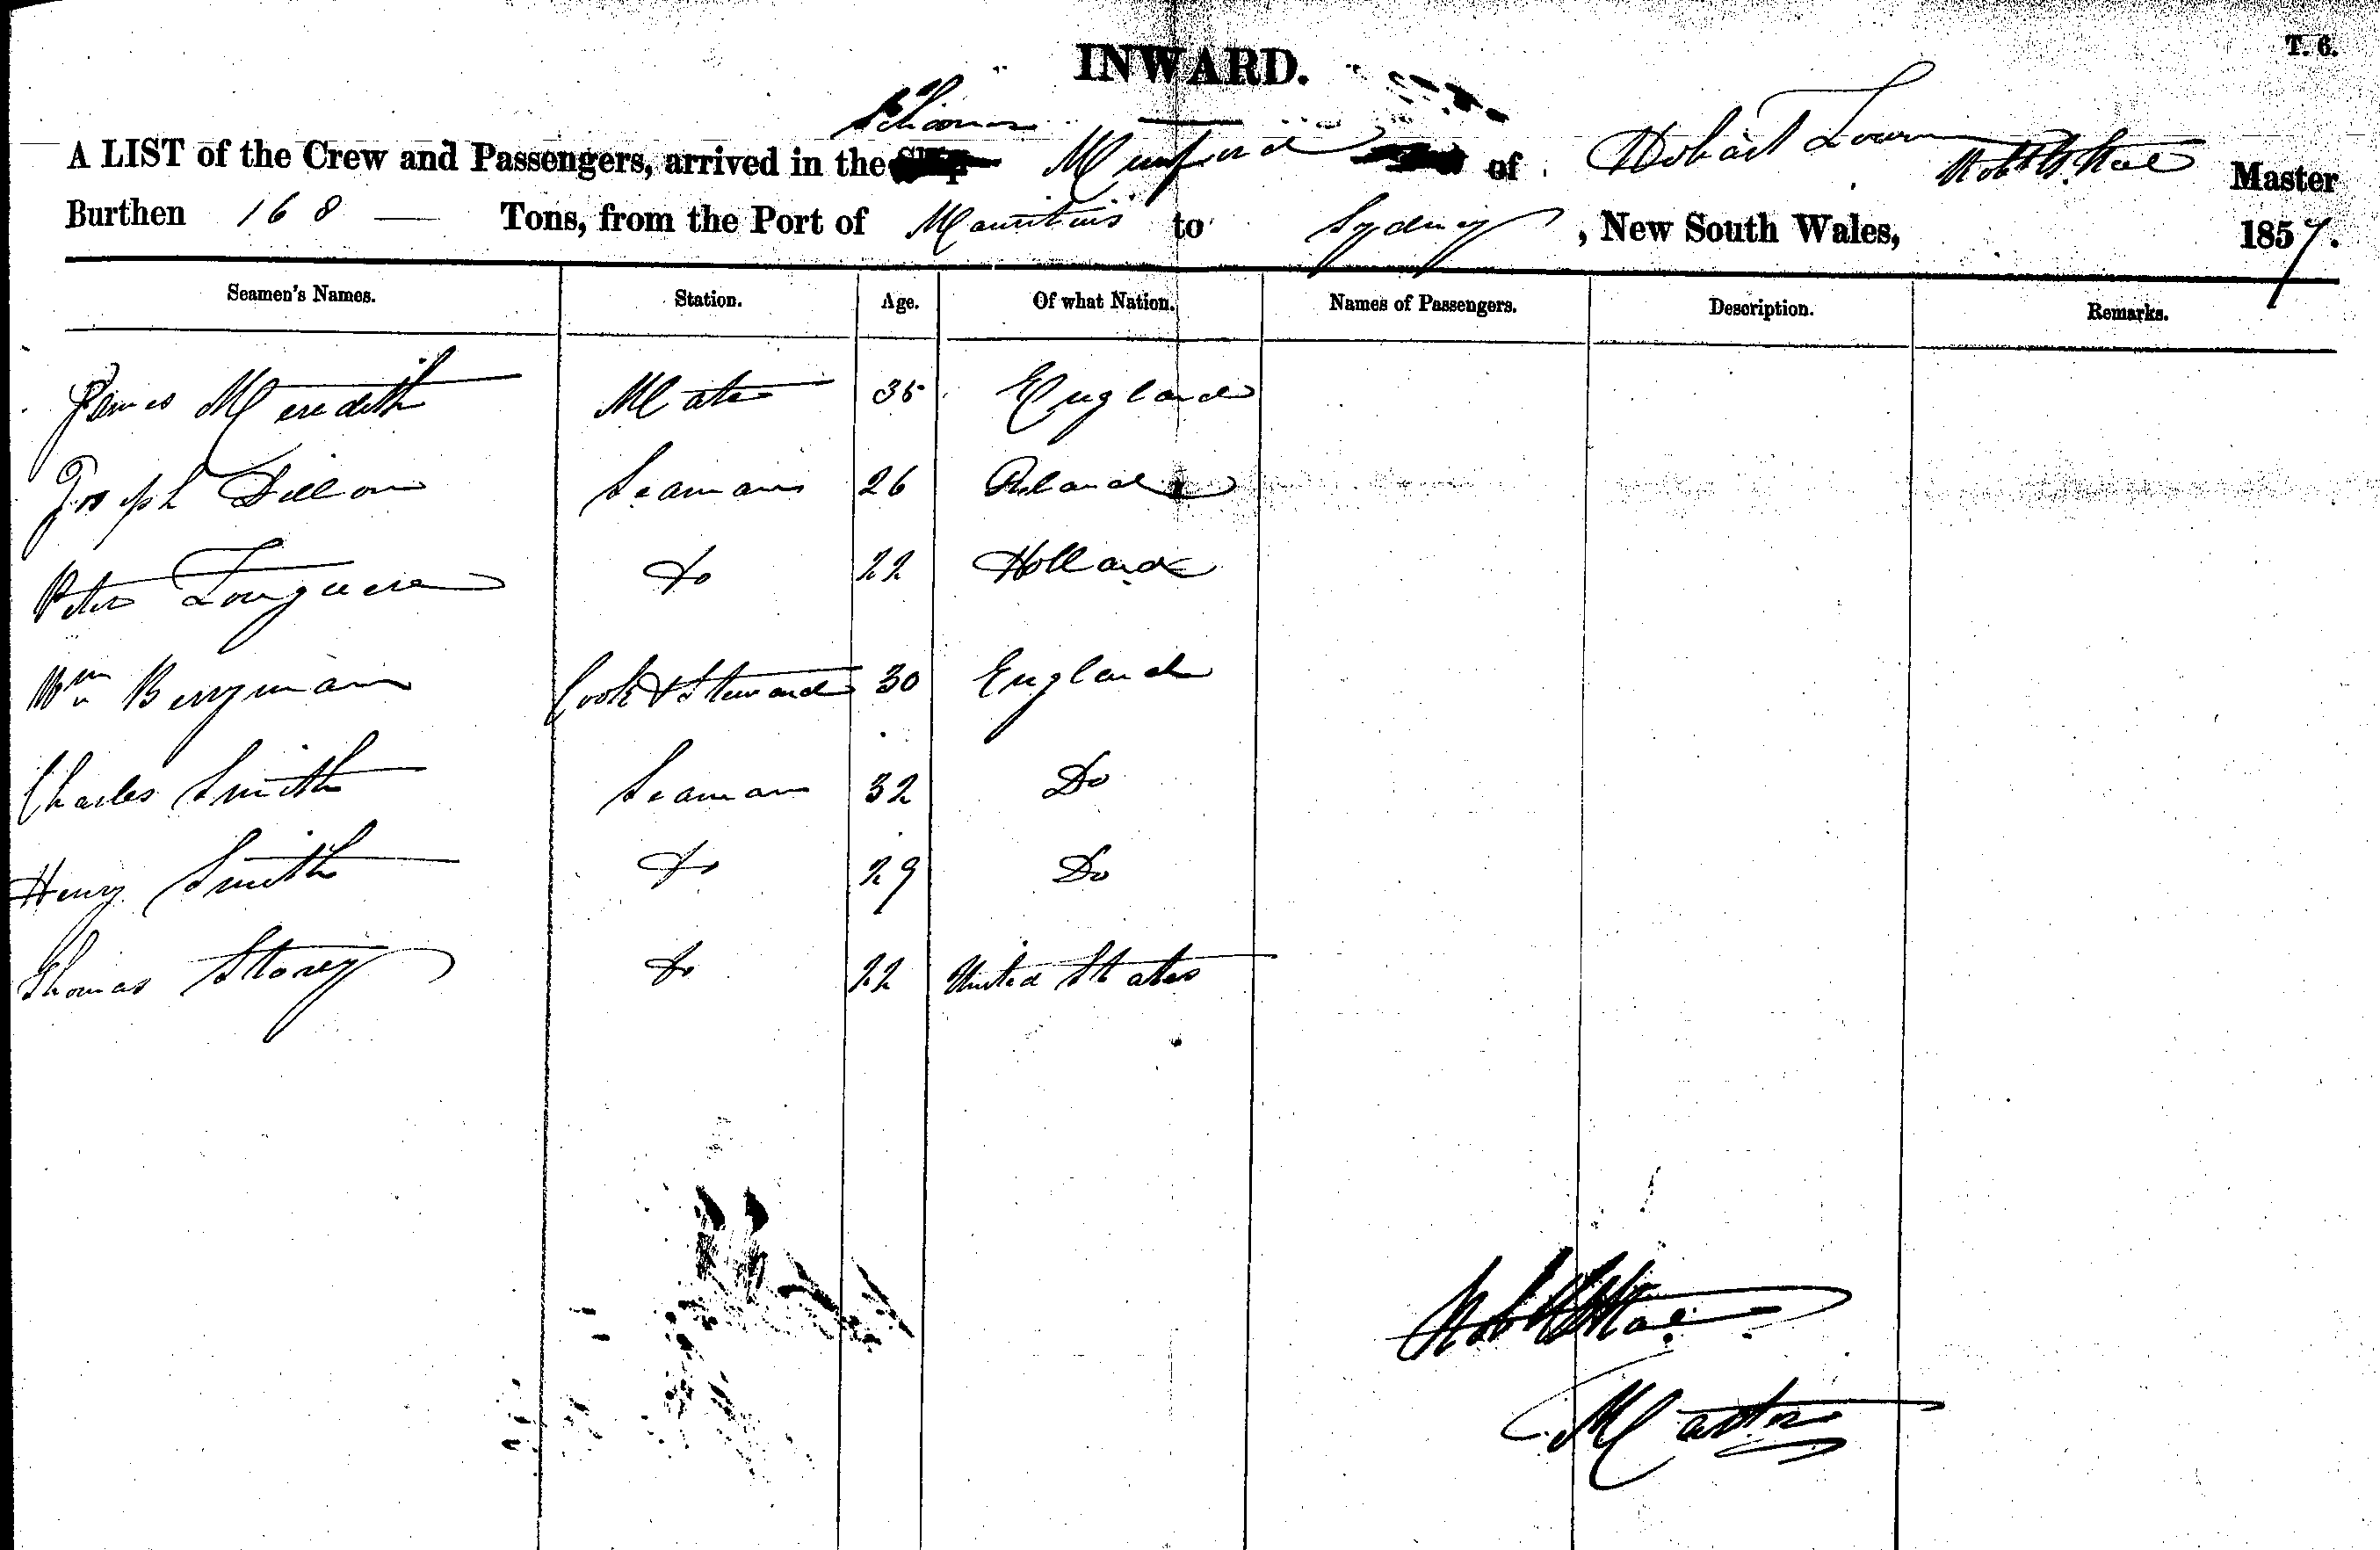 T. 6.
INWARD.
Schooner
A LIST of the Crew and Passengers, arrived in the Munford of Hobart Town Master
Burthen 168 — Tons, from the Port of Mauritius to Sydney , New South Wales, 1857.
Seamen's Names. Station. Age. Of what Nation. Names of Passengers. Description. Remarks.
James Meredith Mate 35 England
Joseph Dillon Seaman 26
Peter Do 22 Holland
Wm Berryman Cook & Steward 30 England
Charles Smith Seaman 32 Do
Henry Smith Do 29 Do
Thomas Storey Do 22 United States
Master